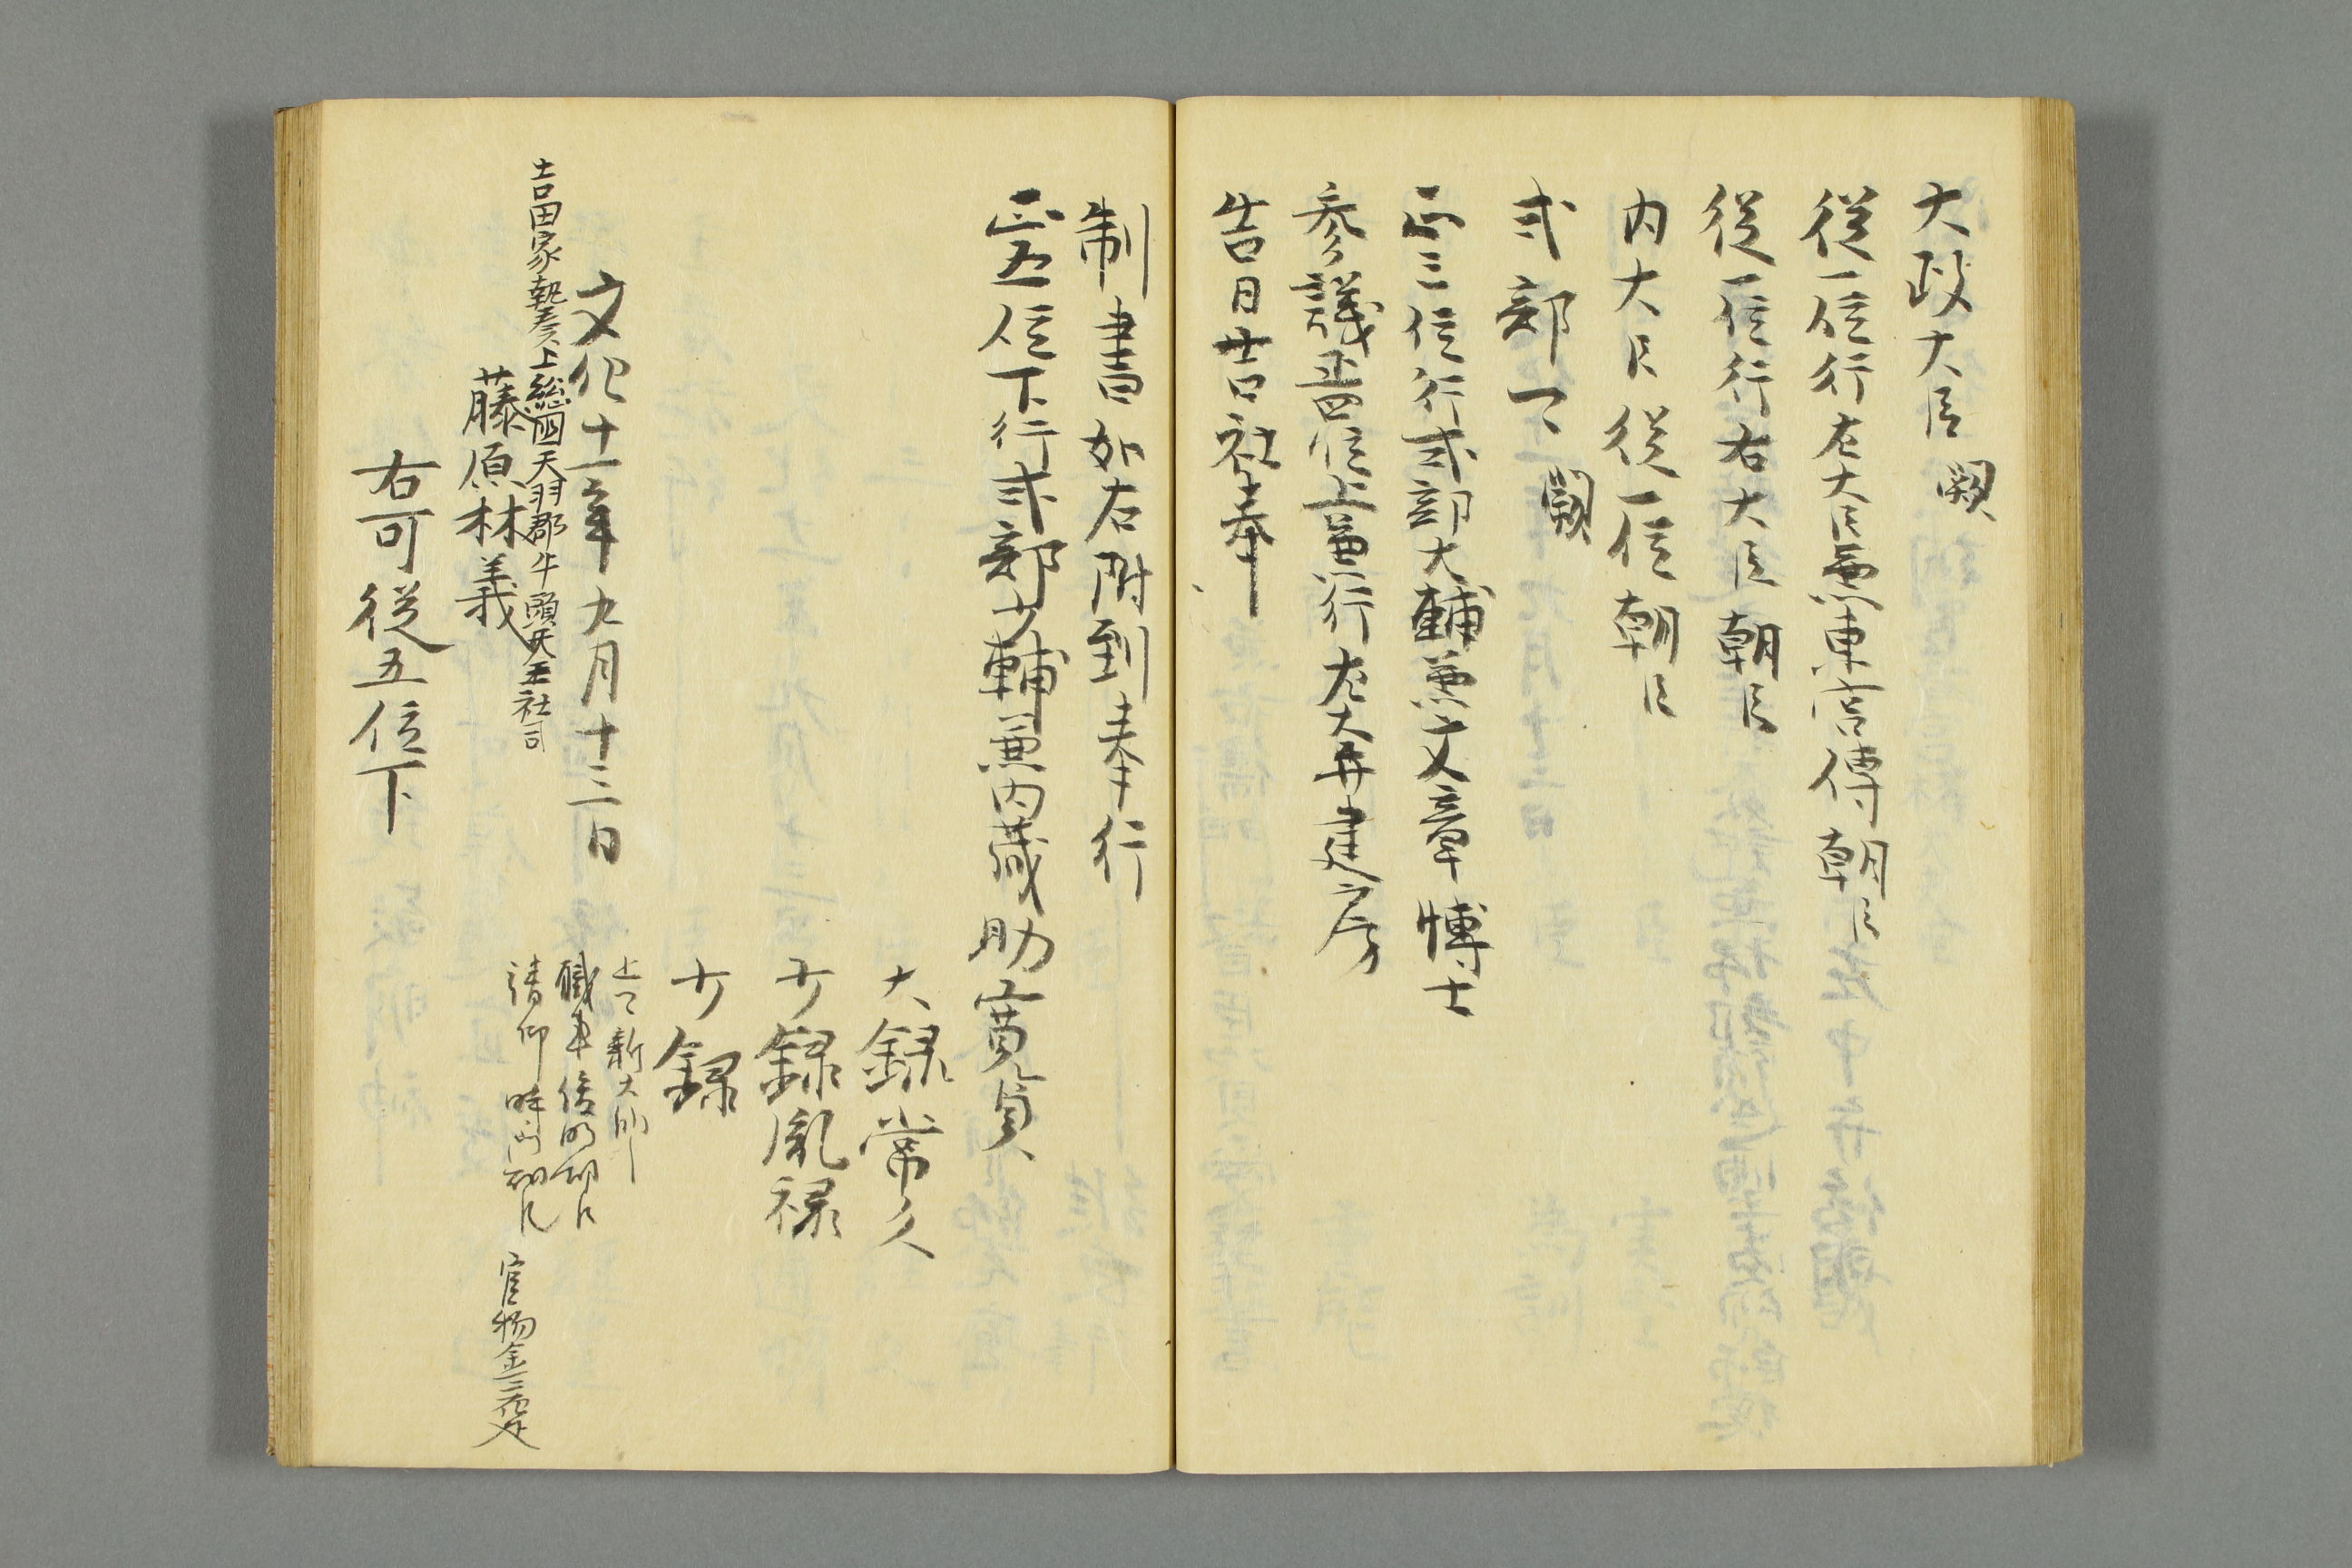 大政大臣 闕
従一位行左大臣兼東宮傅朝臣
従一位行右大臣朝臣
内大臣従一位朝臣
式部卿 闕
正三位行式部大輔兼文章博士
参議正四位上行左大弁建房
告日吉社奉
制書如右附到奉行
正五位下行式部少輔兼内蔵助
大録常久
少録胤禄
少録
文化十一年九月十三日
上卿新大納言
職事俊明朝臣
吉田家執奏上総國天羽郡牛頭天王社司
請印
官物金
藤原林義
右可従五位下